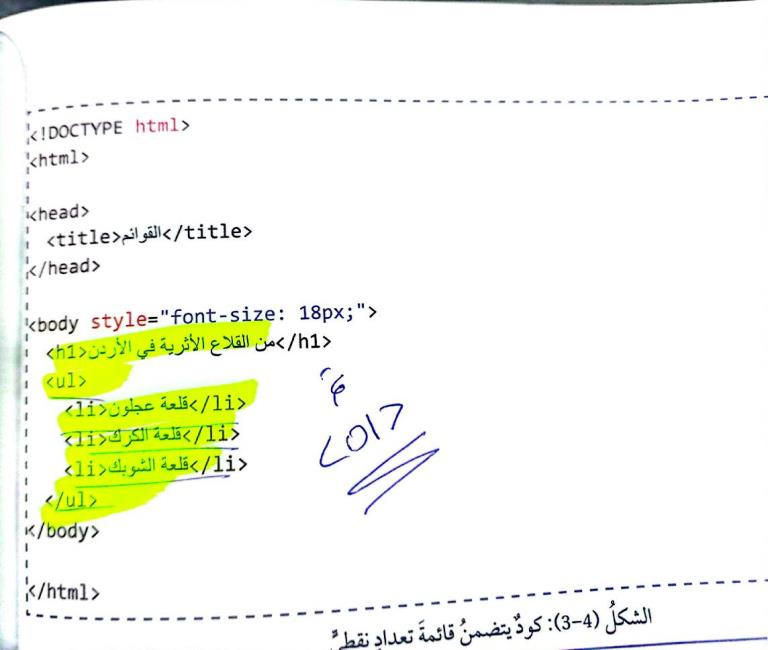 <!DOCTYPE html>
<html>
<head>
<title>القوائم</title>
</head>
<body style="font-size: 18px;">
<h1>من القلاع الأثرية في الأردن</h1>
<ul>
<li>قلعة عجلون</li>
<li>قلعة الكرك</li>
<li>قلعة الشوبك</li>
</ul>
</body>
</html>
<ol>
الشكلُ (4-3): كودٌ يتضمنُ قائمةَ تعدادٍ نقطيٍّ